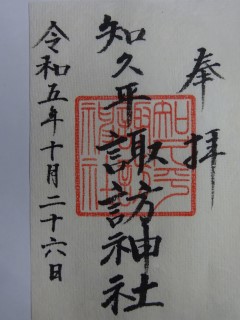 奉拝
知久平諏訪神社
令和五年十月二十六日